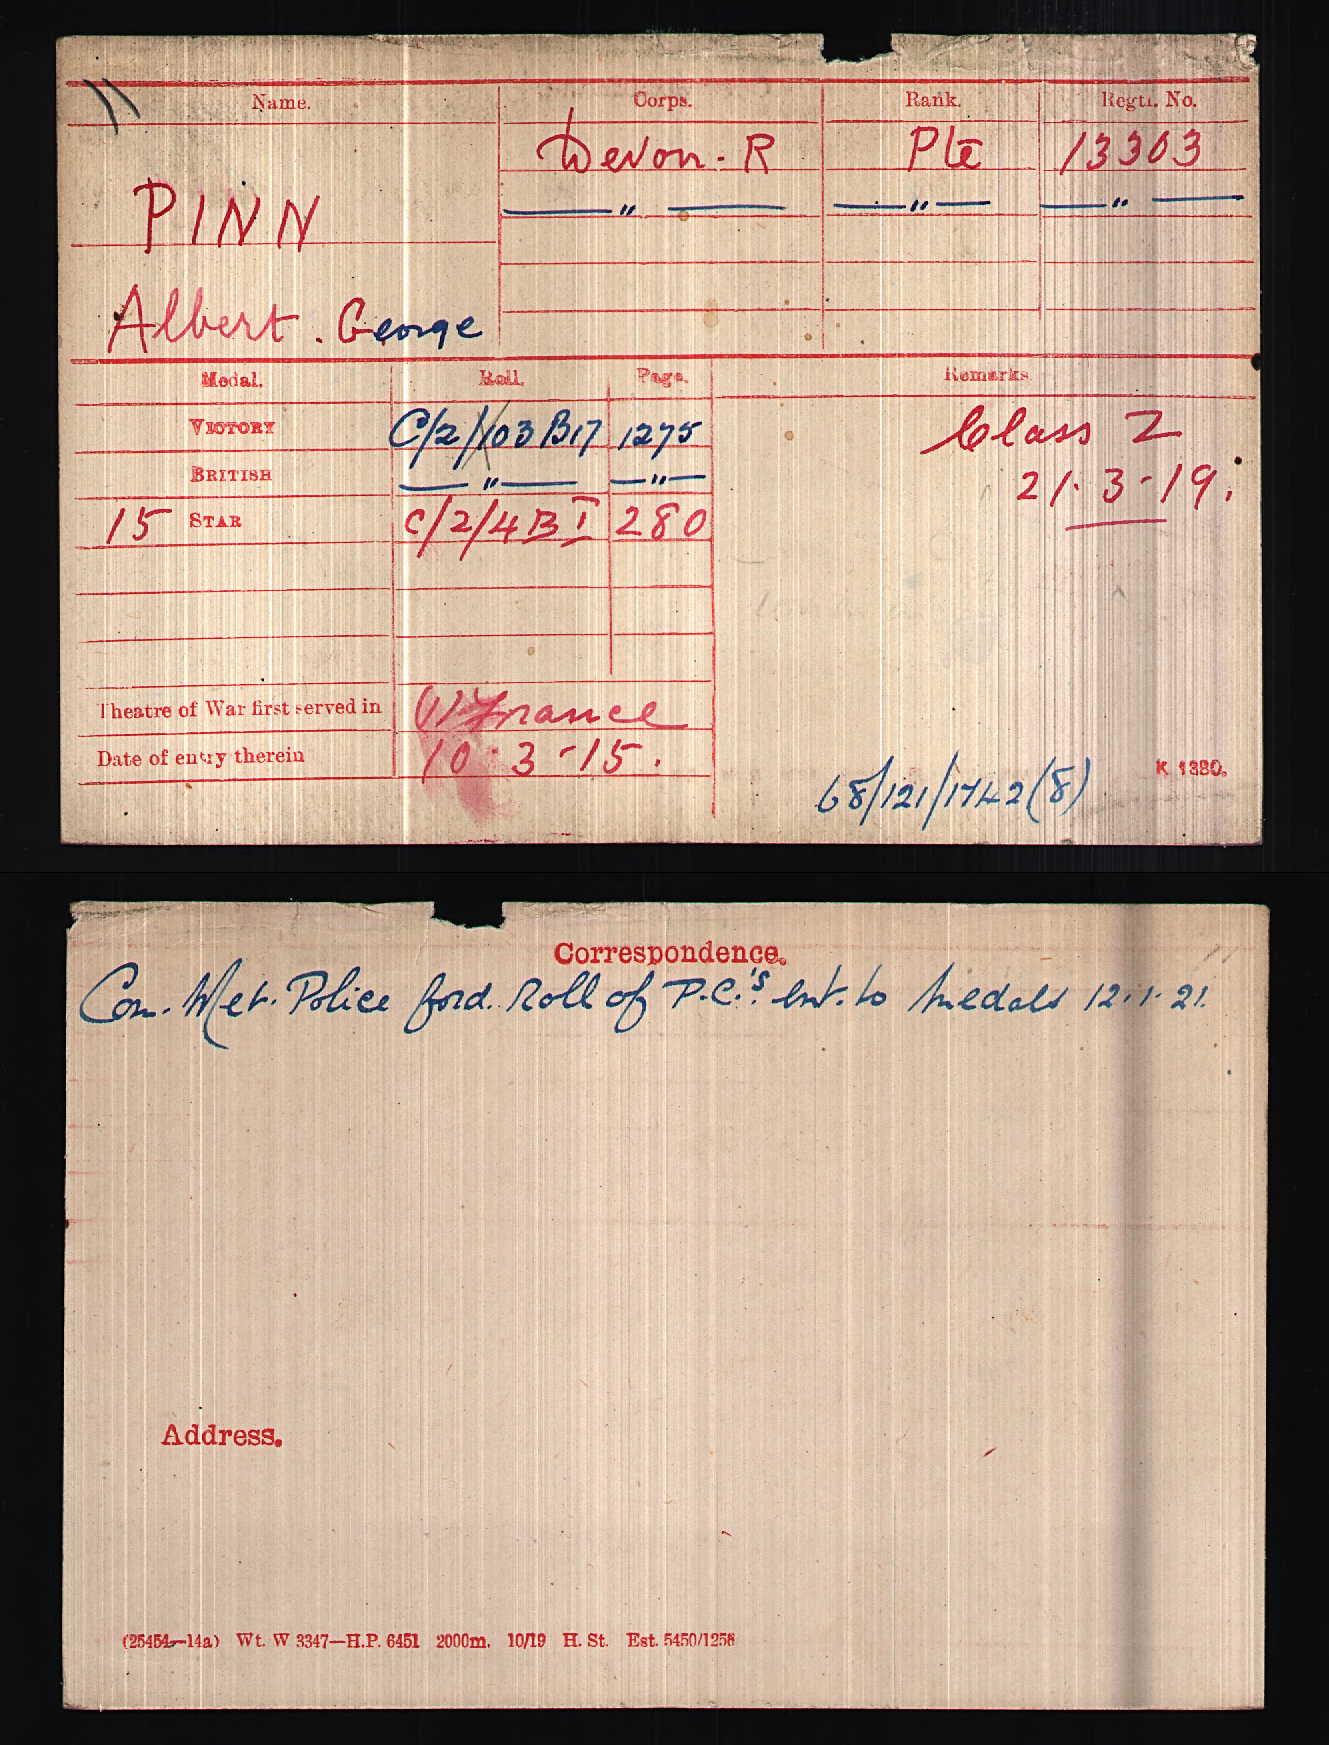 Name. Corps. Rank. Regtl. No.
Devon. R Pte 13303
PINN —"— —"— —"—
Albert. George
Medal. Roll. Page. Remarks
VICTORY C/2/103 B17 1275 Class Z
BRITISH —"— —"— 21.3.19.
15 STAR C/2/4 B I 280
Theatre of War first served in (1) France
Date of entry therein 10.3.15.
68/121/1742(8) K 1380.
Correspondence.
Com. Met. Police ford. Roll of P.C.'s ent. to medals 12.1.21.
Address.
(25454—14a) Wt. W 3347—H.P. 6451 2000m. 10/19 H. St. Est. 5450/1258